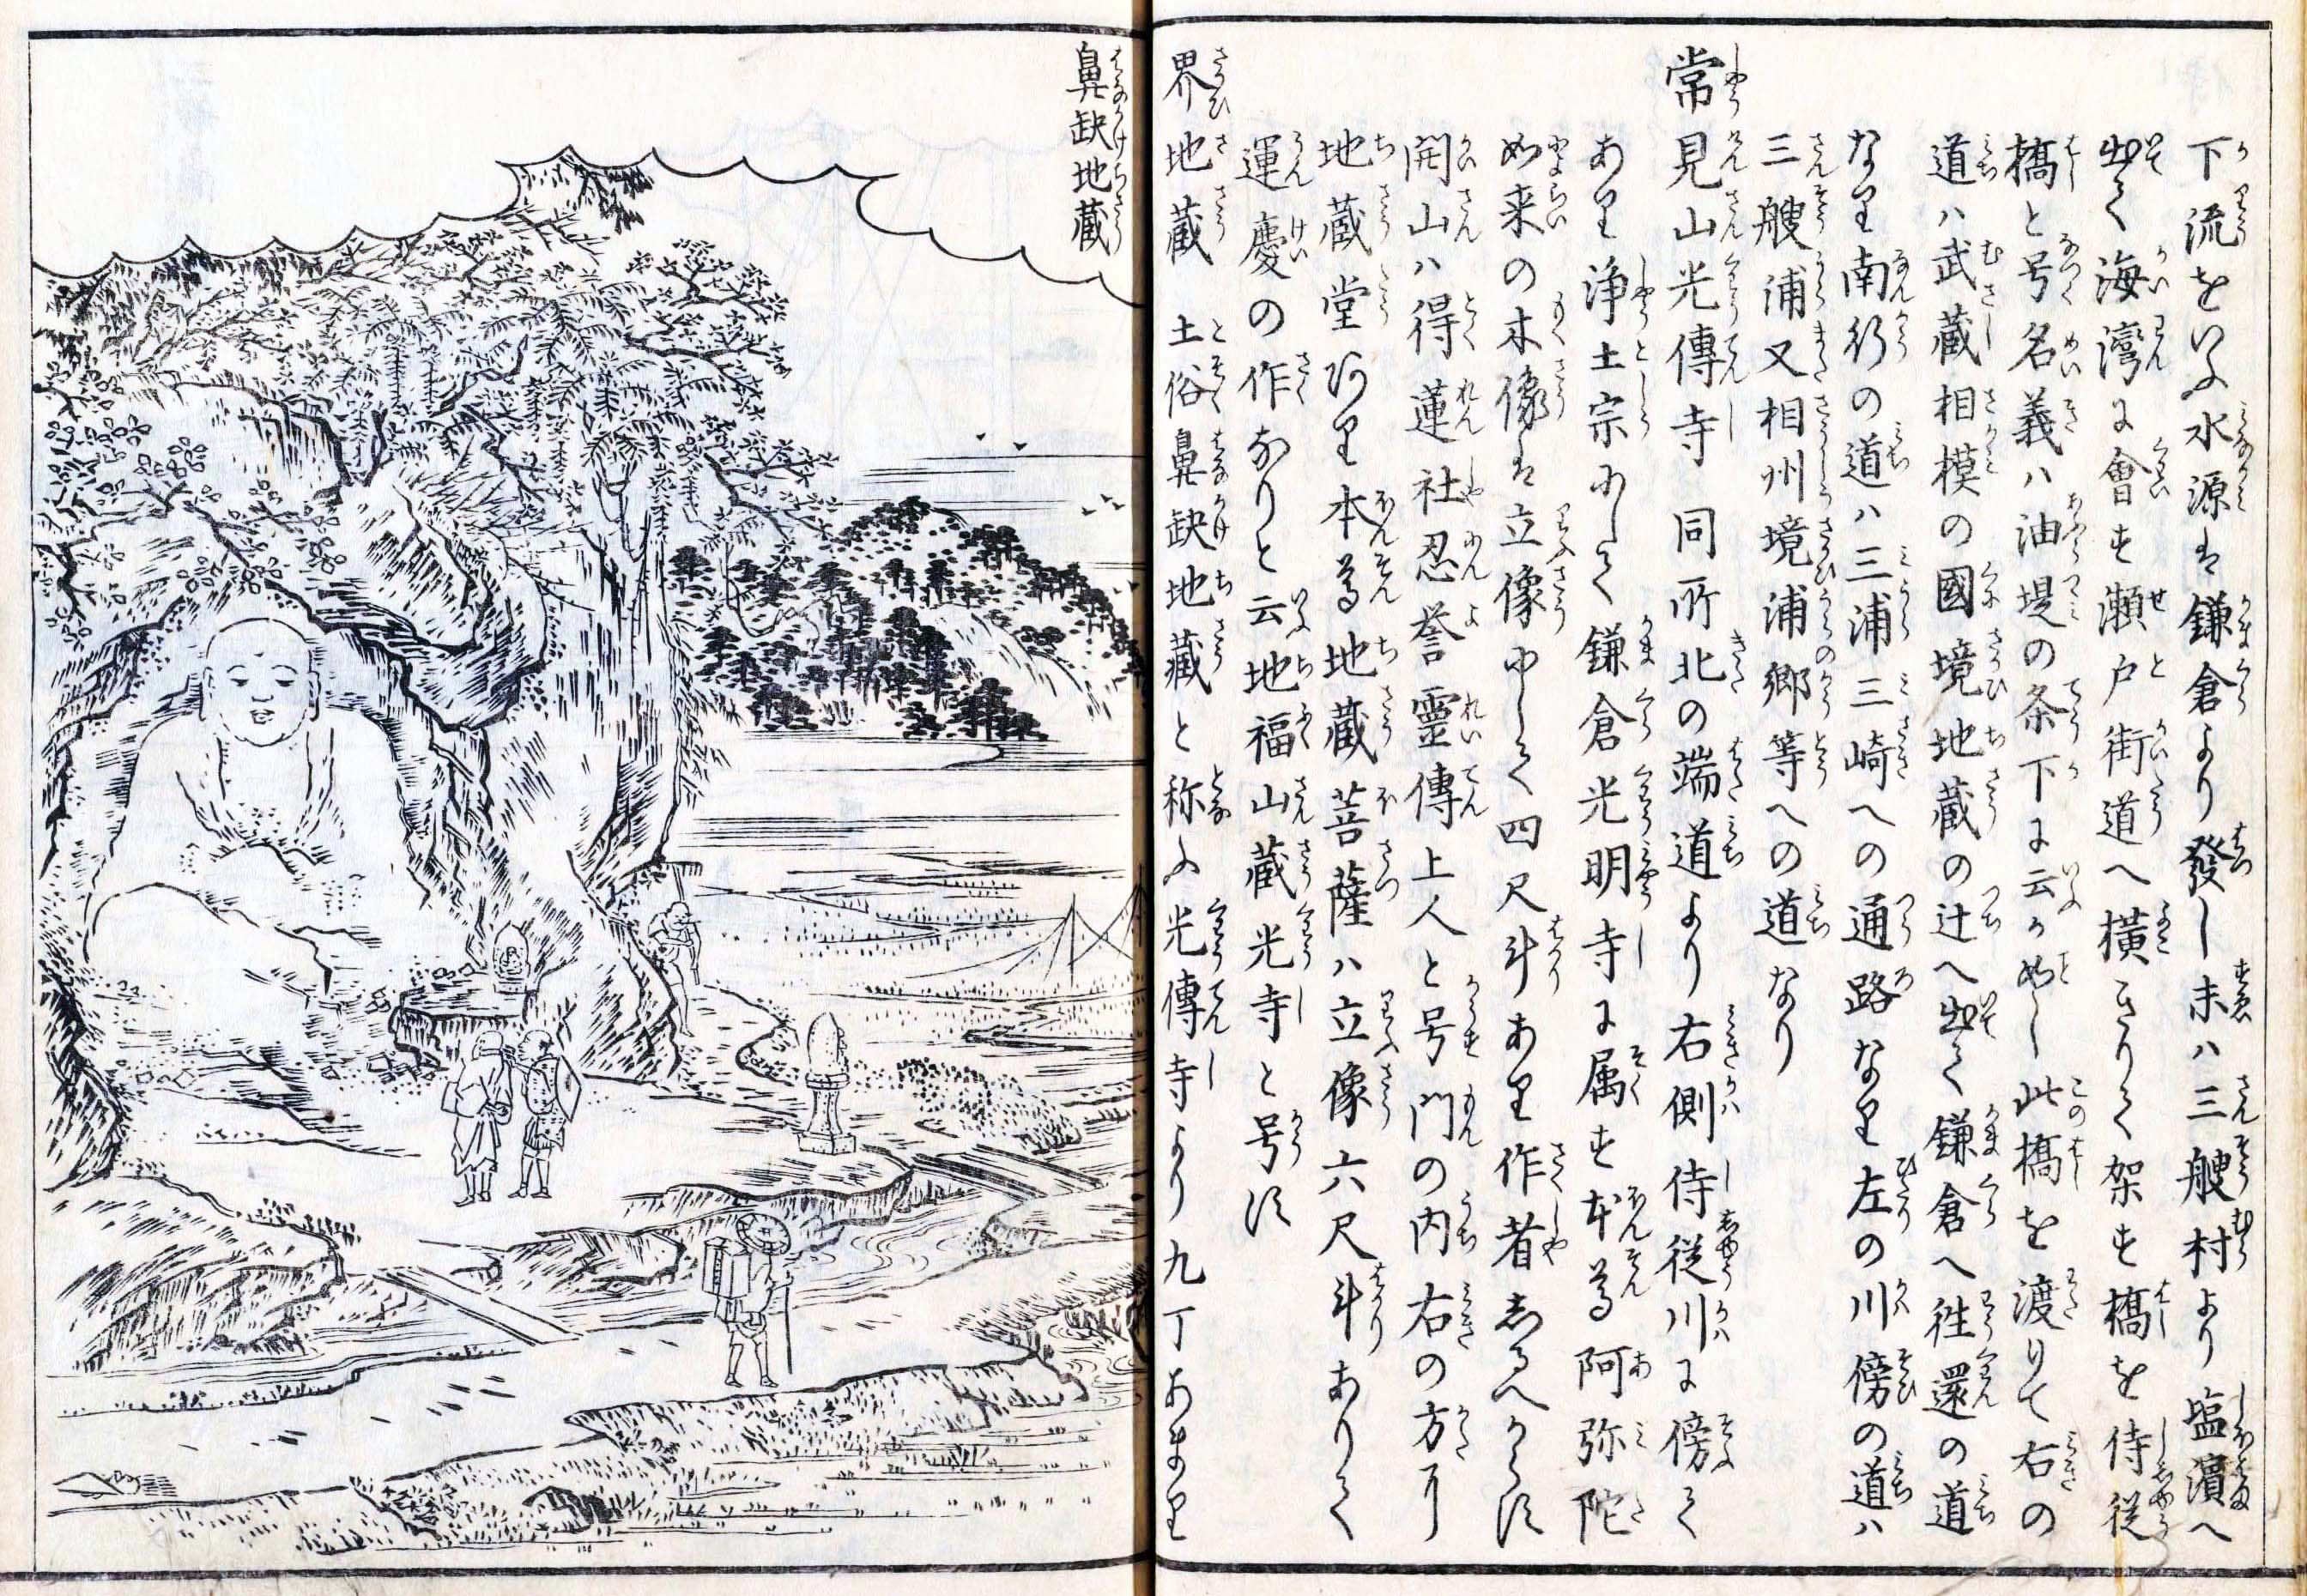 下流をいふ水源は鎌倉より發し末ハ三艘村より塩濱へ
出て海灣に會す瀬戸街道へ横きりて架す橋を侍従
橋と号名義ハ油堤の条下に云か如し此橋を渡りて右の
道ハ武蔵相模の國境地蔵の辻へ出て鎌倉へ往還の道
なり南行の道ハ三浦三崎への通路なり左の川傍の道ハ
三艘浦又相州境浦郷等への道なり
常見山光傳寺 同所北の端道より右側侍従川に傍て
あり浄土宗にして鎌倉光明寺に属す本尊阿弥陀
如来の木像は立像にして四尺斗あり作者しるへからす
開山ハ得蓮社忍誉靈傳上人と号門の内右の方に
地蔵堂あり本尊地蔵菩薩ハ立像六尺斗ありて
運慶の作なりと云地福山蔵光寺と号す
界地蔵 土俗鼻缺地蔵と称ふ光傳寺より九丁あまり
鼻缺地蔵